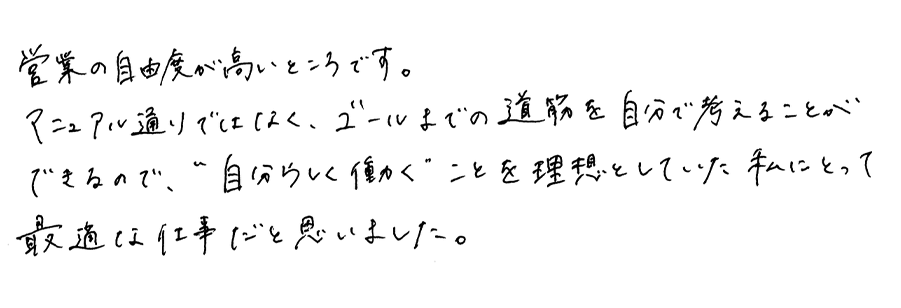 営業の自由度が高いところです。
マニュアル通りではなく、ゴールまでの道筋を自分で考えることが
できるので、“自分らしく働く”ことを理想としていた私にとって
最適な仕事だと思いました。